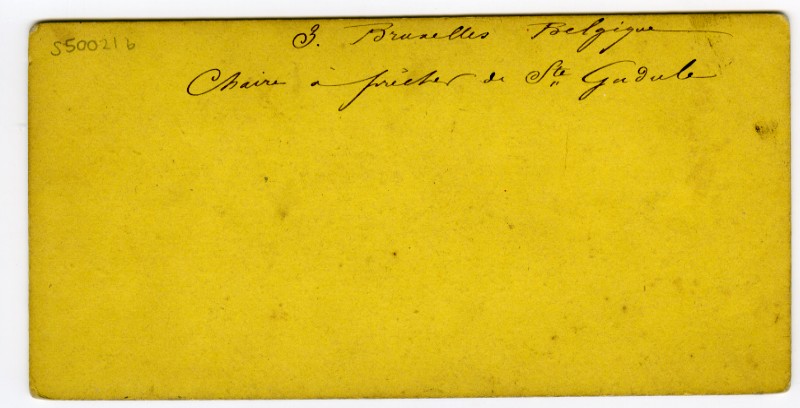 S50021b
3. Bruxelles Belgique
Chaire à prêcher de Ste Gudule